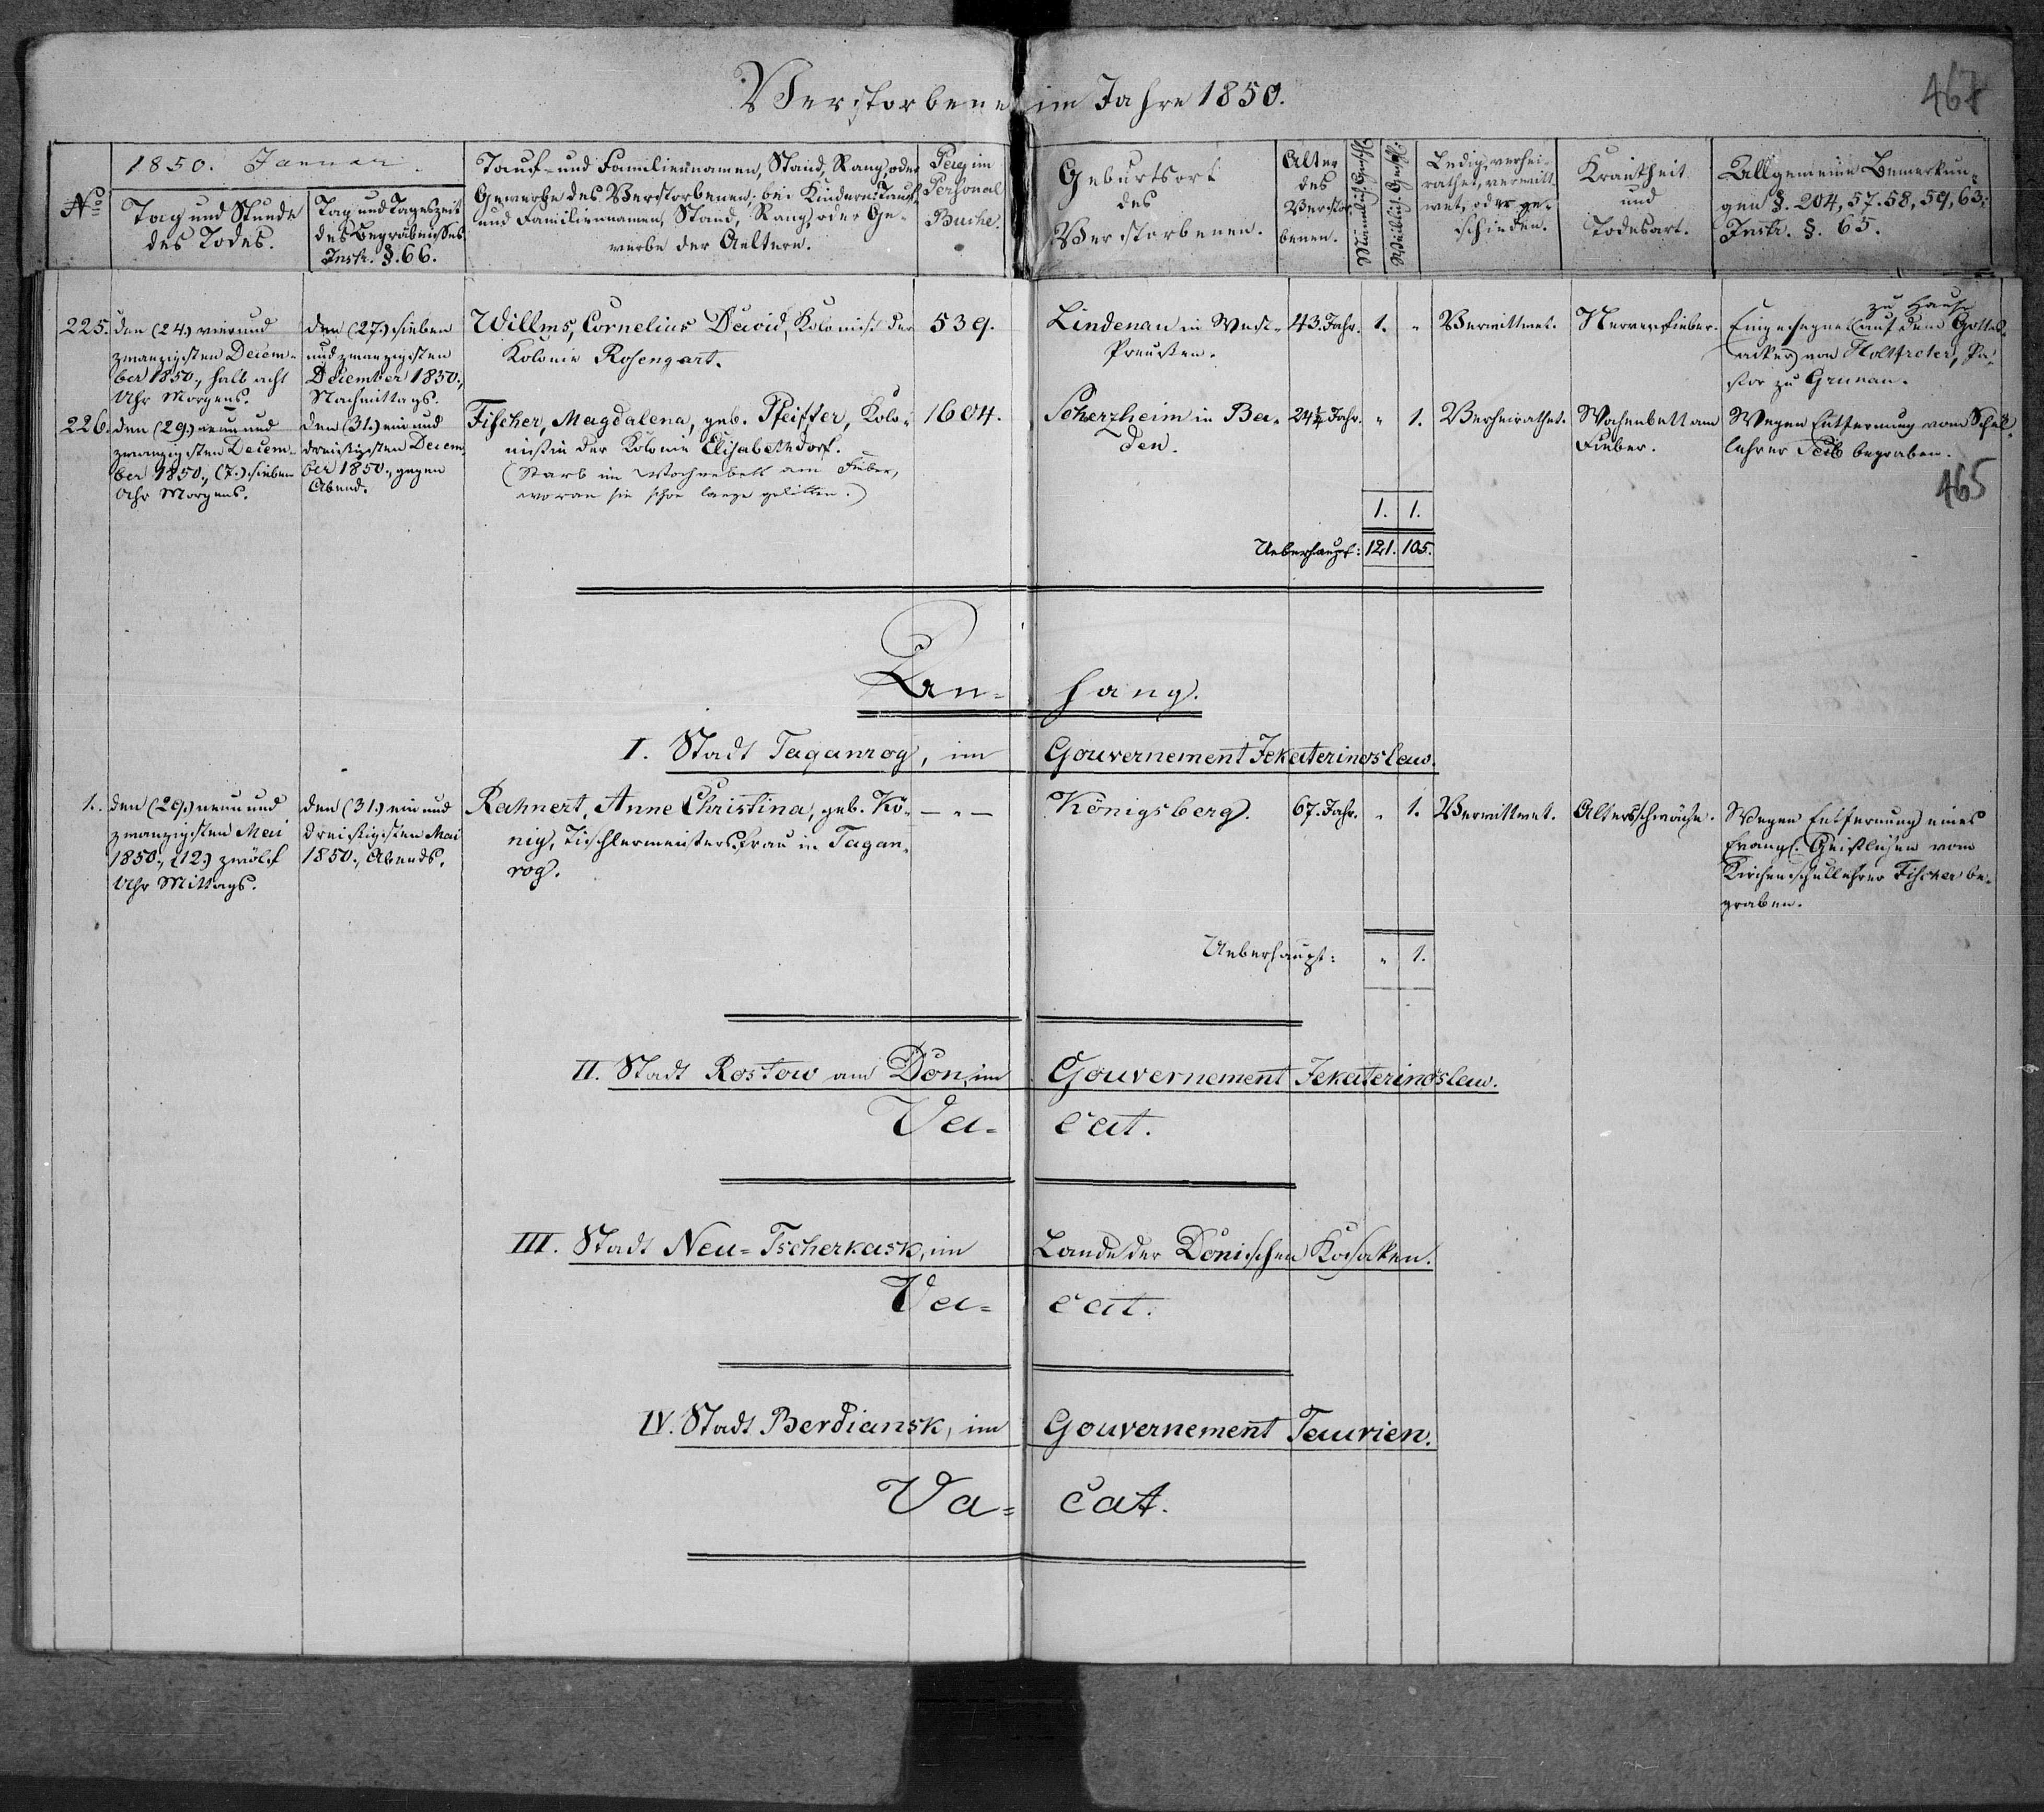 Verstorbene im Jahre 1850.
467
No
1850. Januar
Tag und Stunde
des Todes.
Tag und Tageszeit
des Begräbnisses
Instr. §. 66.
Tauf- und Familiennamen, Stand, Rang, oder
Gewerbe des Verstorbenen; bei Kindern: Tauf-
und Familiennamen, Stand, Rang, oder Ge-
werbe der Aeltern.
Pag. im
Personal
Buche.
Geburtsort
des
Verstorbenen.
Alter
des
Verstor-
benen.
Männlich. Geschl.
Weiblich. Geschl.
Ledig, verhei-
rathet, verwitt-
wet, oder ge-
schieden.
Krankheit
und
Todesart.
Allgemeine Bemerkun-
gen §. 204, 57. 58, 59, 63;
Instr. §. 65.
225. den (24.) vierund
zwanzigsten Decem-
ber 1850., halb acht
Uhr Morgens.
den (27.) sieben
und zwanzigsten
December 1850.,
Nachmittags.
Willms, Cornelius David, Kolonist der
Kolonie Rosengart.
539.
Lindenau in West-
Preussen.
43. Jahr.
1. "
Verwittwet.
Nervenfieber.
zu Hause
Eingesegnet (auf dem Gottes-
acker) von Holtfreter, Pa-
stor zu Grunau.
226. den (29.) neun und
zwanzigsten Decem-
ber 1850., (7.) sieben
Uhr Morgens.
den (31.) ein und
dreissigsten Decem-
ber 1850., gegen
Abend.
Fischer, Magdalena, geb. Pfeiffer, Kolo-
nistin der Kolonie Elisabethdorf.
(Starb im Wochenbett am Fieber,
woran sie schon lange gelitten.)
1604.
Scherzheim in Ba-
den.
24½ Jahr.
" 1.
Verheirathet.
Wochenbett am
Fieber.
Wegen Entfernung vom Schul-
lehrer begraben.
465
1. 1.
Ueberhaupt: 121. 105.
An- hang.
I. Stadt Taganrog, im Gouvernement Jekaterinoslaw.
1. den (29.) neun und
zwanzigsten Mai
1850., (12.) zwölf
Uhr Mittags.
den (31.) ein und
dreissigsten Mai
1850., Abends.
Rahnert, Anne Christina, geb. Kö-
nig, Tischlermeisters Frau in Tagan-
rog.
— " —
Königsberg.
67. Jahr.
" 1.
Verwittwet.
Altersschwäche.
Wegen Entfernung eines
Evangl. Geistlichen vom
Kirchenschullehrer Fischer be-
graben.
Ueberhaupt: " 1.
II. Stadt Rostow am Don, im Gouvernement Jekaterinoslaw.
Va- cat.
III. Stadt Neu-Tscherkask, im Lande der Donischen Kosaken.
Va- cat.
IV. Stadt Berdiansk, im Gouvernement Taurien.
Va- cat.